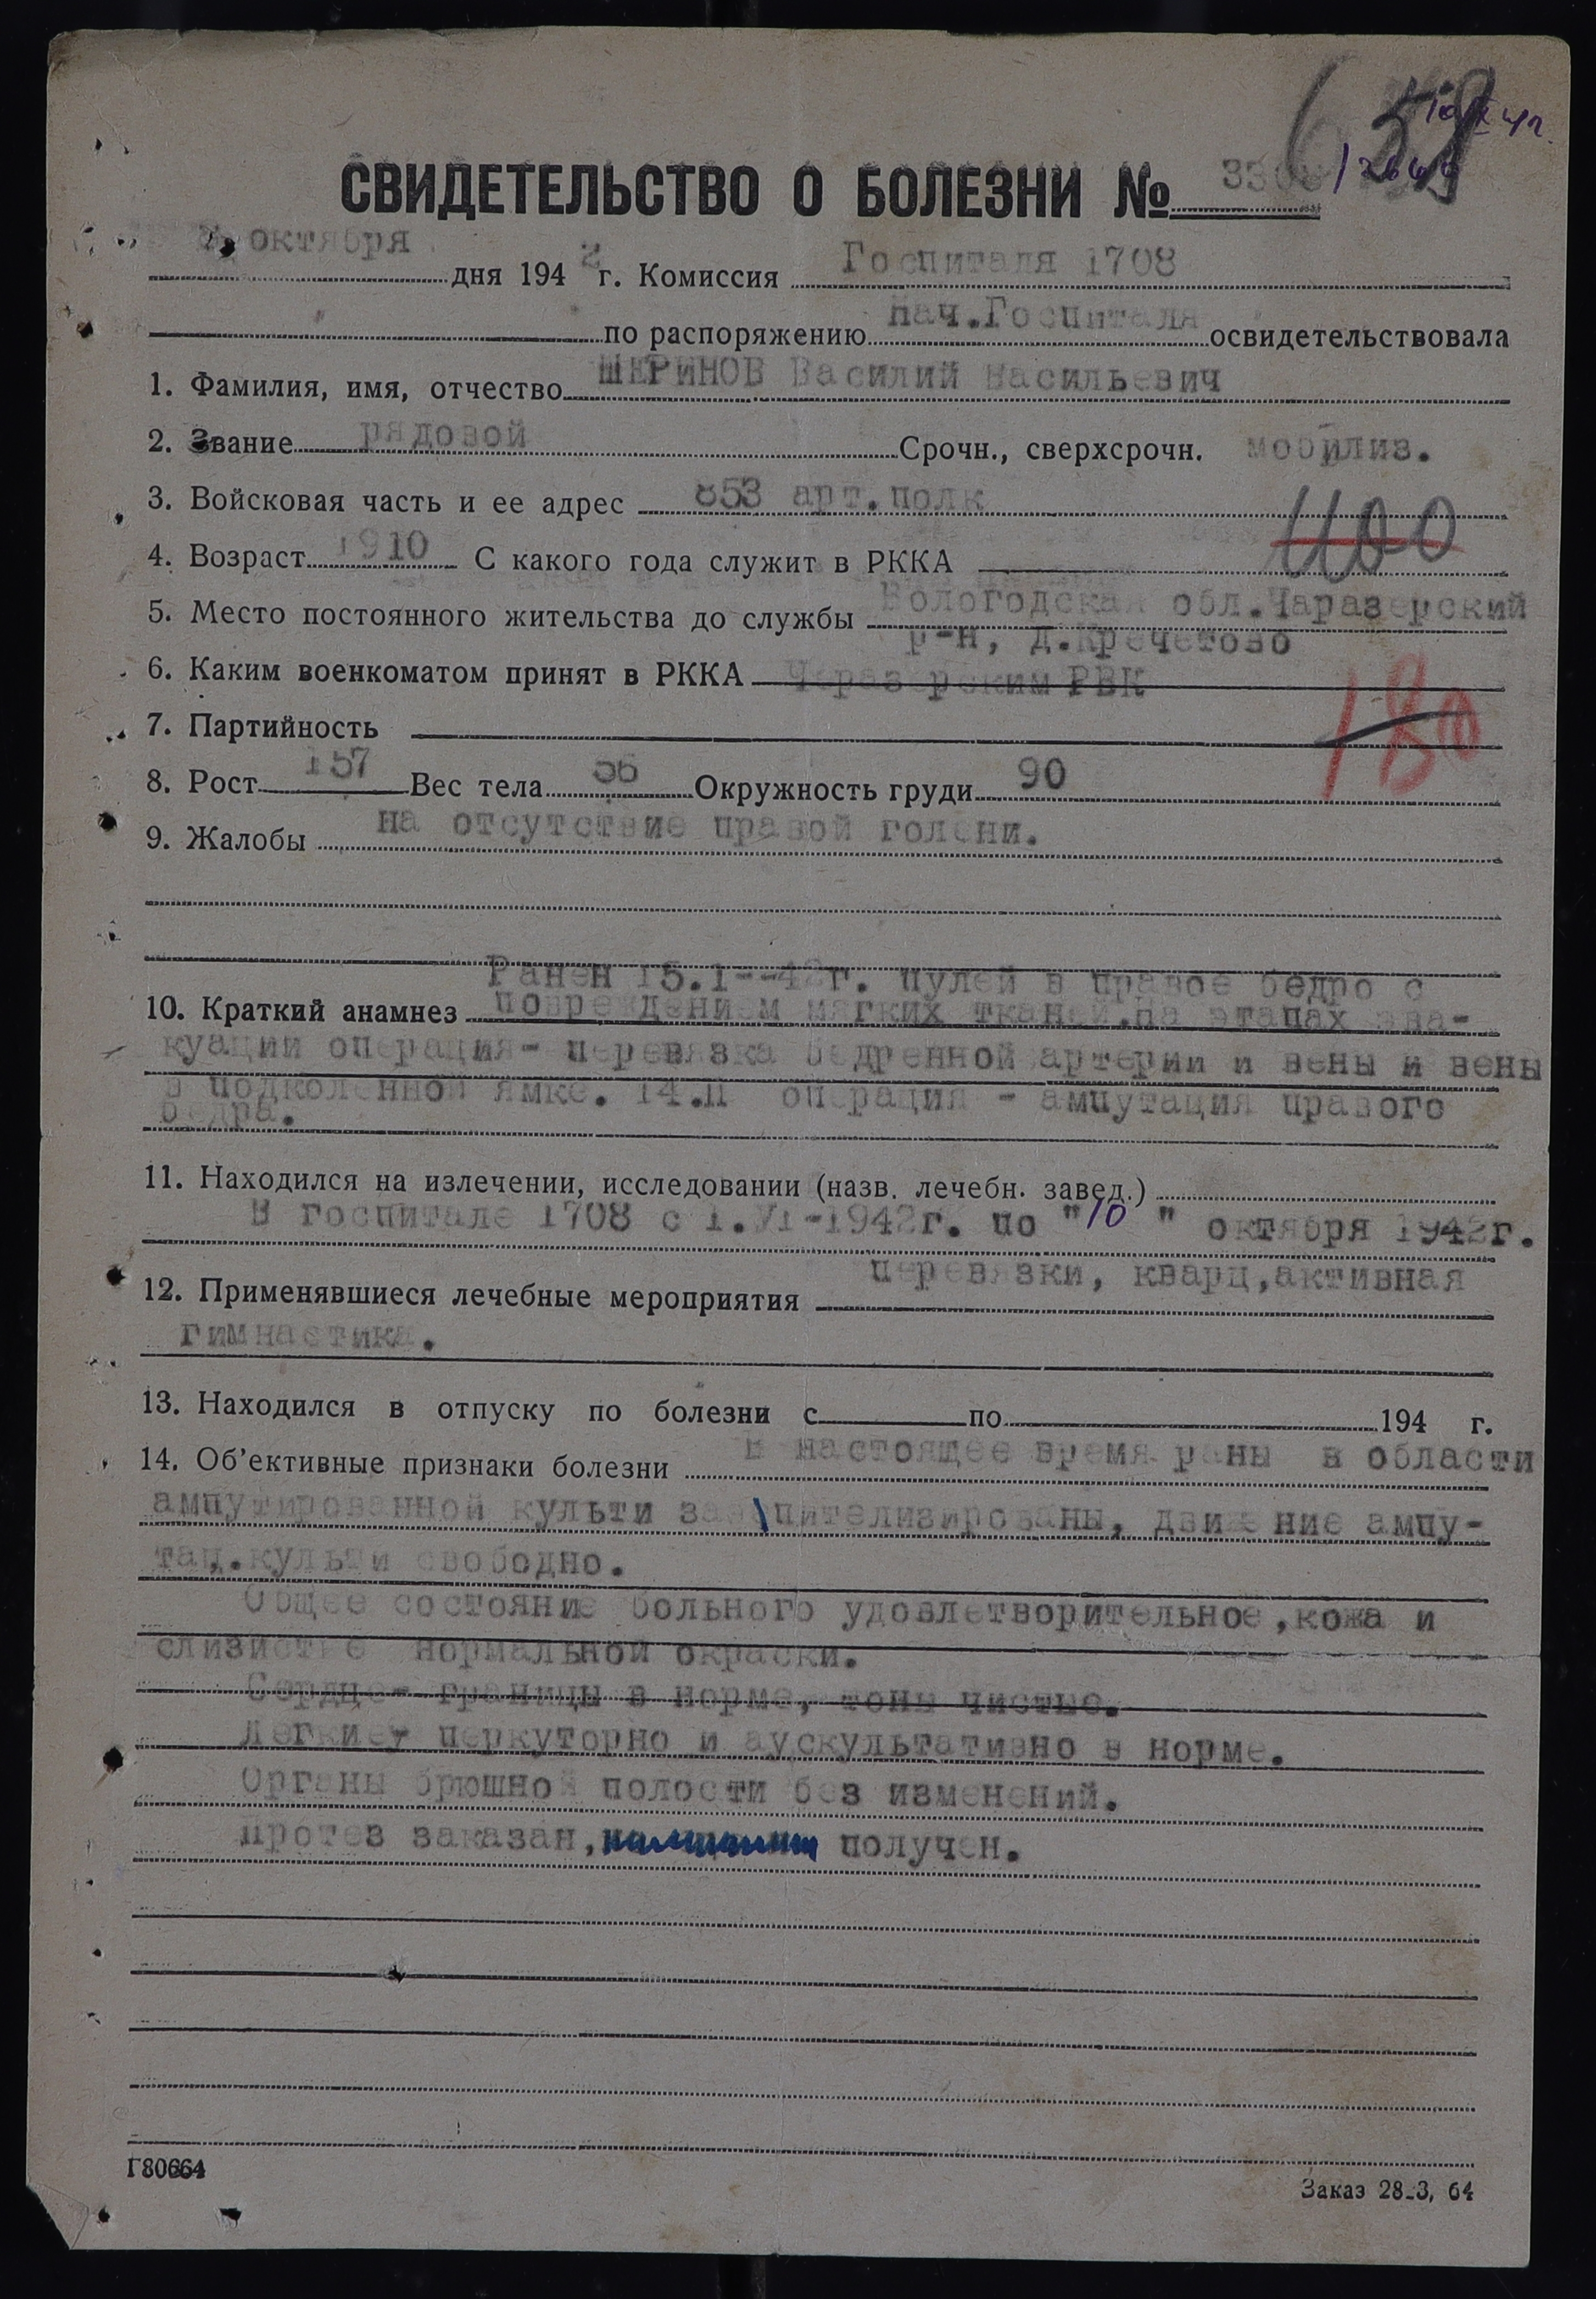 658
СВИДЕТЕЛЬСТВО О БОЛЕЗНИ №
октября
дня 1942 г. Комиссия Госпиталя 1708
по распоряжению Нач.Госпиталя освидетельствовала
1. Фамилия, имя, отчество ШЕРИНОВ Василий Васильевич
2. Звание рядовой Срочн., сверхсрочн. мобилиз.
3. Войсковая часть и ее адрес 853 арт.полк
400
4. Возраст 1910 С какого года служит в РККА
5. Место постоянного жительства до службы Вологодская обл.Чаразерский
р-н, д.Кречетово
6. Каким военкоматом принят в РККА Чаразерским РВК
180
7. Партийность
8. Рост 157 Вес тела 56 Окружность груди 90
9. Жалобы на отсутствие правой голени.
Ранен 15.1--42г. пулей в правое бедро с
10. Краткий анамнез повреждением мягких тканей.На этапах эва-
куации операция- перевязка бедренной артерии и вены и вены
в подколенной ямке. 14.II операция - ампутация правого
бедра.
11. Находился на излечении, исследовании (назв. лечебн. завед.)
В госпитале 1708 с 1.VI-1942г. по "10" октября 1942г.
12. Применявшиеся лечебные мероприятия перевязки, кварц,активная
гимнастика.
13. Находился в отпуску по болезни с по 194 г.
14. Об'ективные признаки болезни В настоящее время раны в области
ампутированной культи заэпителизированы, движение ампу-
тац.культи свободно.
Общее состояние больного удовлетворительное,кожа и
слизистые нормальной окраски.
Сердце- границы в норме, тоны чистые.
Легкие- перкуторно и аускультативно в норме.
Органы брюшной полости без изменений.
Протез заказан, получен.
Г80664
Заказ 28-3, 64